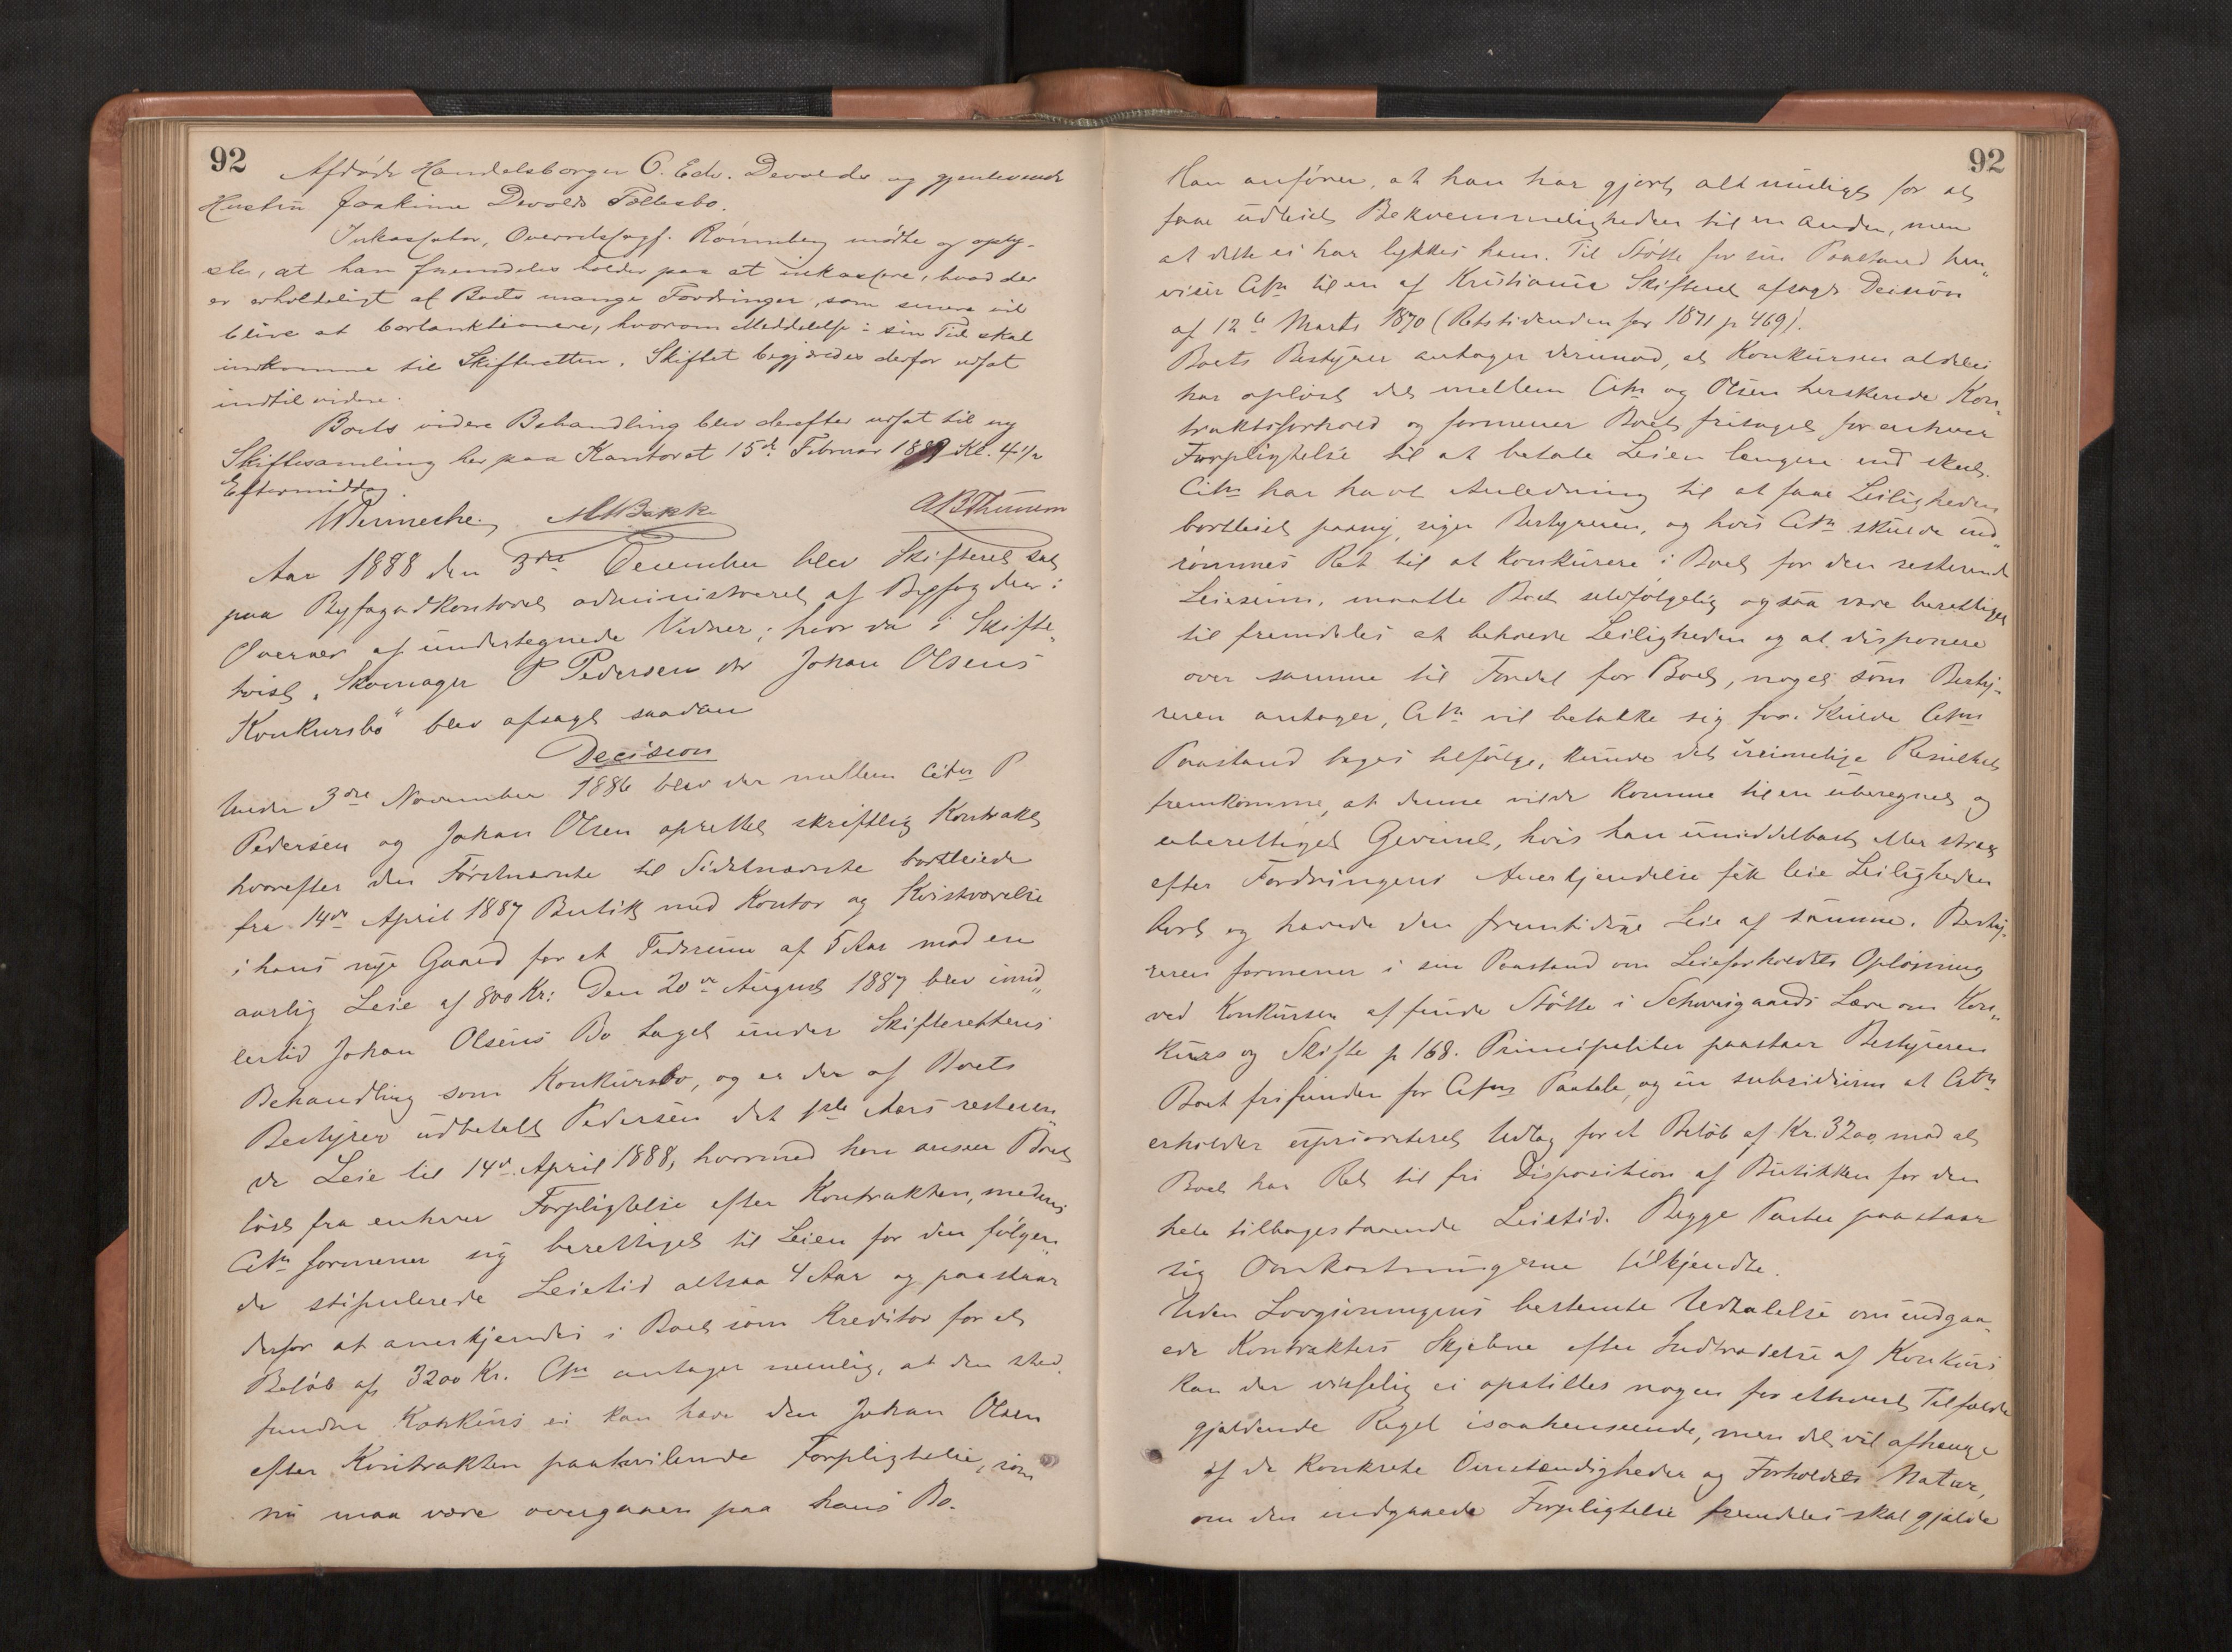 92
Afdøde Handelsborger O. Edv. Devolds og gjenlevende
Hustru Joakime Devolds Fællesbo.
Inkassator, Overretssagf. Rønneberg mødte og oply-
ste, at han fremdeles holder paa at inkassere, hvad der
er erholdeligt af Boets mange Fordringer, som senere vil
blive at bortauktionere, hvorom Meddelelse i sin Tid skal
indkomme til Skifteretten. Skiftet begjæredes derfor udsat
indtil videre.
Boets videre Behandling blev derefter udsat til ny
Skiftesamling her paa Kontoret 15de Februar 1889 Kl. 4 1/2
Eftermiddag.
Aar 1888 den 3die December blev Skifteret sat
paa Byfogedkontoret administreret af Byfogden i
Overvær af undertegnede Vidner; hvor da i Skifte„
tvist „Skomager P Pedersen ctr Johan Olsens
Konkursbo" blev afsagt saadan
Decision
Under 3die November 1886 blev der mellem Citn P
Pedersen og Johan Olsen oprettet skriftlig Kontrakt
hvorefter den Førstnævnte til Sidstnævnte bortleiede
fra 14de April 1887 Butik med Kontor og Kvistværelse
i hans nye Gaard for et Tidsrum af 5 Aar mod en
aarlig Leie af 800 Kr: Den 20de August 1887 blev imid„
lertid Johan Olsens Bo taget under Skifterettens
Behandling som Konkursbo, og er der af Boets
Bestyrer udbetalt Pedersen det 1ste Aars resteren„
de Leie til 14de April 1888, hvormed han anseer Boet
løst fra enhver Forpligtelse efter Kontrakten, medens
Citn formener sig berettiget til Leien for den følgen„
de stipulerede Leietid altsaa 4 Aar og paastaar
derfor at anerkjendes i Boet som Kreditor for et
Beløb af 3200 Kr. Citn antager nemlig, at den sted„
fundne Konkurs ei kan hæve den Johan Olsen
efter Kontrakten paahvilende Forpligtelse, som
nu maa være overgaaen paa hans Bo.
92
Han anfører, at han har gjort alt muligt for at
faae udleiet Bekvemmeligheden til en anden, men
at dette ei har lykkes ham. Til Støtte for sin Paastand hen„
viser Citn til en af Kristiania Skifteret afsagt Decision
af 12te Marts 1870 (Retstidenden for 1871 p 469).
Boets Bestyrer antager derimod, at Konkursen aldeles
har opløst det mellem Citn og Olsen herskende Kon„
traktsforhold og formener Boet fritaget for enhver
Forpligtelse til at betale Leien længere end skeet.
Citn har havt Anledning til at faae Leiligheden
bortleiet paany, siger Bestyreren, og hvis Citn skulde ind„
rømmes Ret til at konkurere i Boet for den resterende
Leiesum, maatte Boet selvfølgelig ogsaa være berettiget
til fremdeles at beholde Leiligheden og at disponere
over samme til Fordel for Boet, noget som Besty„
reren antager, Citn vil betakke sig for. Skulde Citns
Paastand tages tilfølge, kunde det urimelige Resultat
fremkomme, at denne vilde komme til en uberegnet og
uberettiget Gevinst, hvis han umiddelbart eller strax
efter Fordringens Anerkjendelse fik leie Leiligheden
bort og hævede den fremtidige Leie af samme. Besty„
reren formener i sin Paastand om Leieforholdets Opløsning
ved Konkursen at finde Støtte i Schweigaards Lære om Kon„
kurs og Skifte p 168. Principaliter paastaar Bestyreren
Boet frifunden for Citns Paatale, og in subsidium at Citn
erholder uprioriteret Udlæg for et Beløb af Kr. 3200, mod at
Boet har Ret til fri Disposition af Butikken for den
hele tilbagestaaende Leietid. Begge Parter paastaar
sig Omkostningerne tilkjendte.
Uden Lovgivningens bestemte Udtalelse om indgaa„
ede Kontrakters Skjebne efter Indtrædelse af Konkurs
kan der vistselig ei opstilles nogen for ethvert Tilfælde
gjældende Regel isaahenseende, men det vil afhænge
af de konkrete Omstændigheder og Forholdets Natur,
om den indgaaede Forpligtelse fremdeles skal gjælde